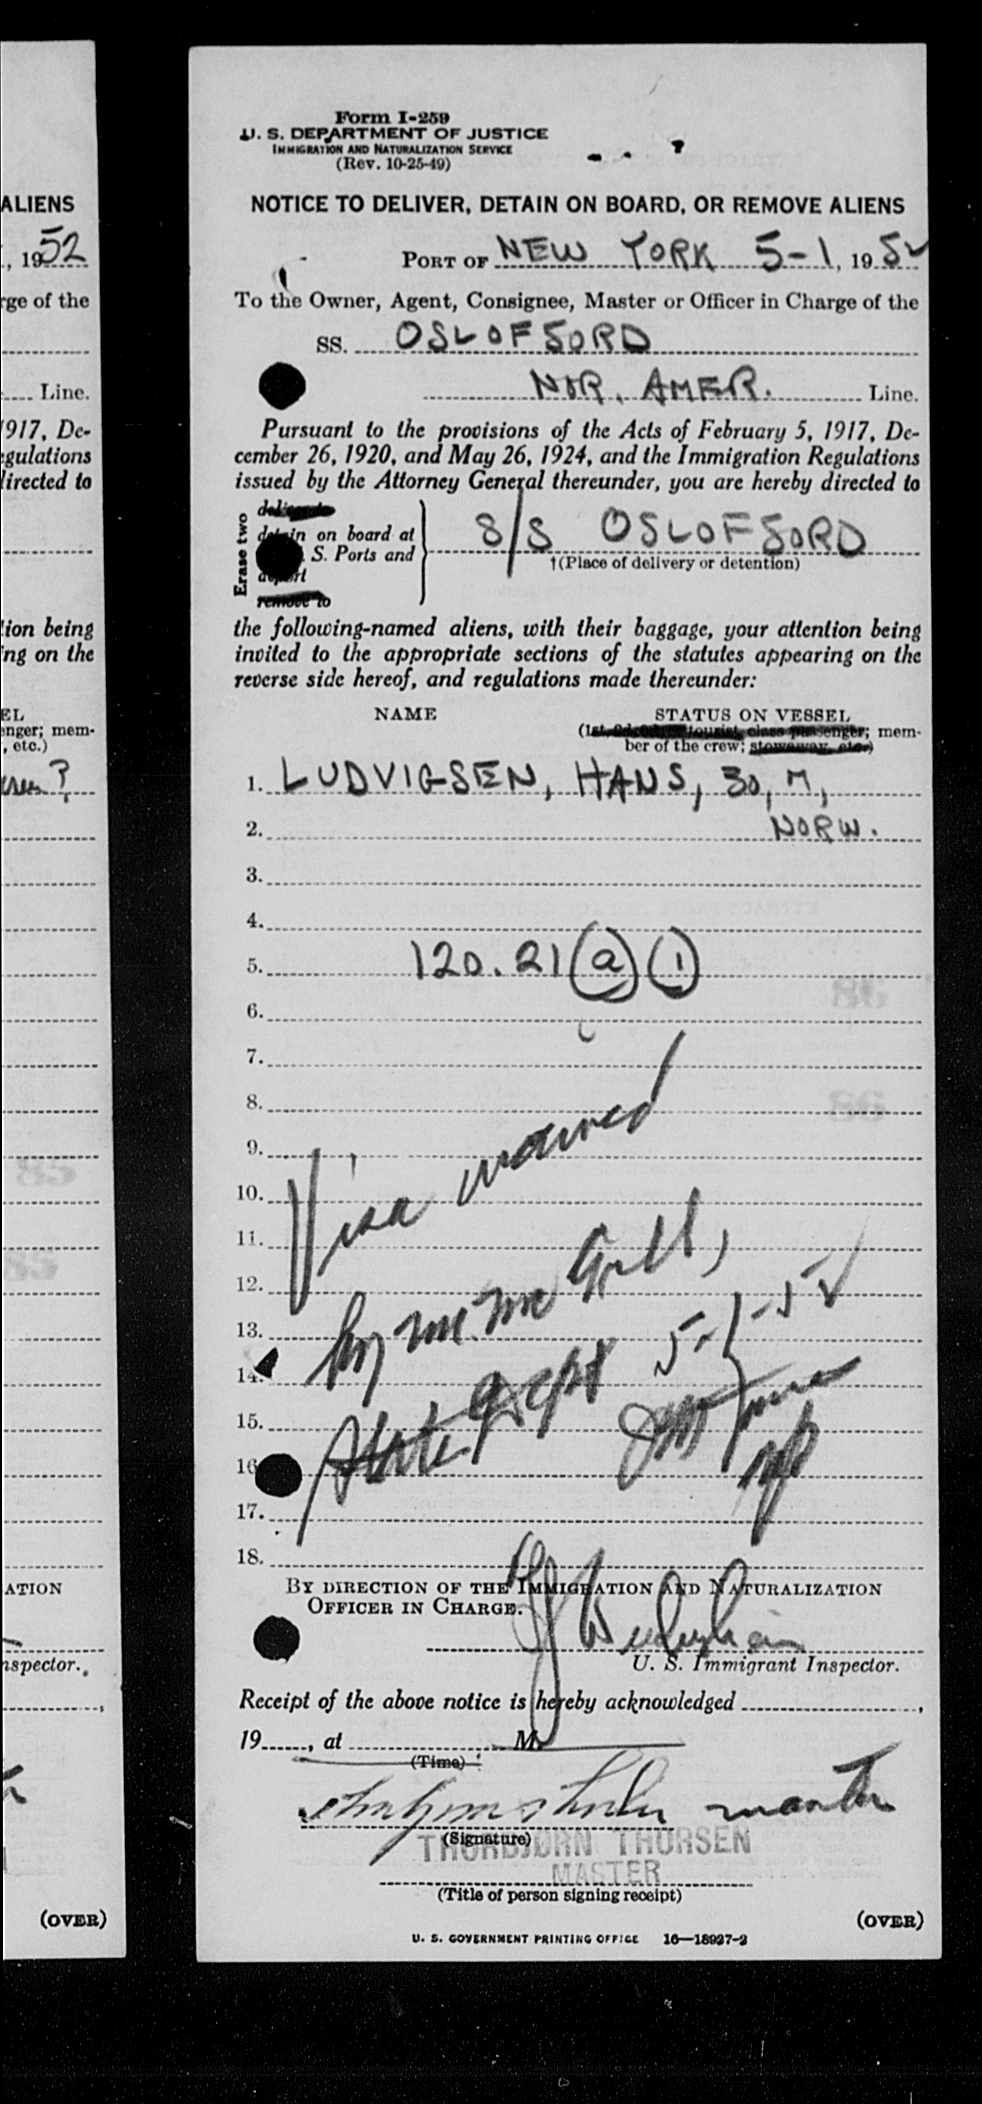 ALIENS
, 1952
rge of the
Line.
1917, De-
egulations
directed to
tion being
ng on the
EL
enger; mem-
, etc.)
?
85
85
ATION
nspector.
,
(OVER)
Form I-259
U. S. DEPARTMENT OF JUSTICE
IMMIGRATION AND NATURALIZATION SERVICE
(Rev. 10-25-49)
NOTICE TO DELIVER, DETAIN ON BOARD, OR REMOVE ALIENS
PORT OF NEW YORK 5-1, 1952
To the Owner, Agent, Consignee, Master or Officer in Charge of the
SS. OSLOFJORD
NOR. AMER. Line.
Pursuant to the provisions of the Acts of February 5, 1917, De-
cember 26, 1920, and May 26, 1924, and the Immigration Regulations
issued by the Attorney General thereunder, you are hereby directed to
Erase two
detain on board at
S. Ports and
deport
remove to
S/S OSLOFJORD
†(Place of delivery or detention)
the following-named aliens, with their baggage, your attention being
invited to the appropriate sections of the statutes appearing on the
reverse side hereof, and regulations made thereunder:
NAME STATUS ON VESSEL
(1st, tourist, class passenger; mem-
ber of the crew; stowaway, etc.)
1. LUDVIGSEN, HANS, 30, M,
2. NORW.
3.
4.
5. 120.21(a)(1)
6.
86
7.
8.
86
9.
10.
11.
12.
13.
14.
15.
16
17.
18.
Visa waived
by Mr. Mc Gill,
State Dept 5-1-52
BY DIRECTION OF THE IMMIGRATION AND NATURALIZATION
OFFICER IN CHARGE.
U. S. Immigrant Inspector.
Receipt of the above notice is hereby acknowledged ,
19 , at M.
(Time)
master
(Signature)
THORBJØRN THORSEN
MASTER
(Title of person signing receipt)
(OVER)
U. S. GOVERNMENT PRINTING OFFICE 16—18927-2